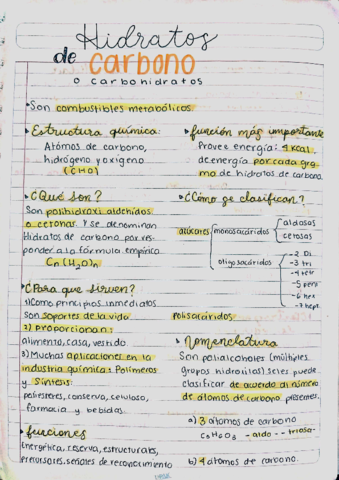 Hidratos
de carbono
o carbohidratos
Son combustibles metabólicos.
Estructura química:
Atómos de carbono,
hidrógeno y oxígeno
(CHO)
función más importante
Provee energía: 4 kcal
de energía por cada gra
mo de hidratos de carbono
¿Qué son?
Son polihidroxi aldehídos
o cetonas. Y se denominan
Hidratos de carbono por res-
ponder a la fórmula empírica
Cn(H2O)n
¿Cómo se clasifican?
azúcares
monosacáridos
aldosas
cetosas
oligosacáridos
-2 Di
-3 tri
-4 tetr
-5 pent
-6 hex
-7 hept
polisacáridos
¿Para que sirven?
1) Como principios inmediatos
Son soportes de la vida
2) proporcionan:
alimento, casa, vestido
3) Muchas aplicaciones en la
industria química: Polímeros
y Síntesis:
poliésteres, conserva, celulosa,
farmacia y bebidas.
funciones
Energética, reserva, estructurales,
Precursores, señales de reconocimiento
Nomenclatura
Son polialcoholes (múltiples
grupos hidroxilos) se les puede
clasificar de acuerdo al número
de átomos de carbono presentes.
a) 3 átomos de carbono
C3H6O3 - aldo -- triosa-
b) 4 átomos de carbono.